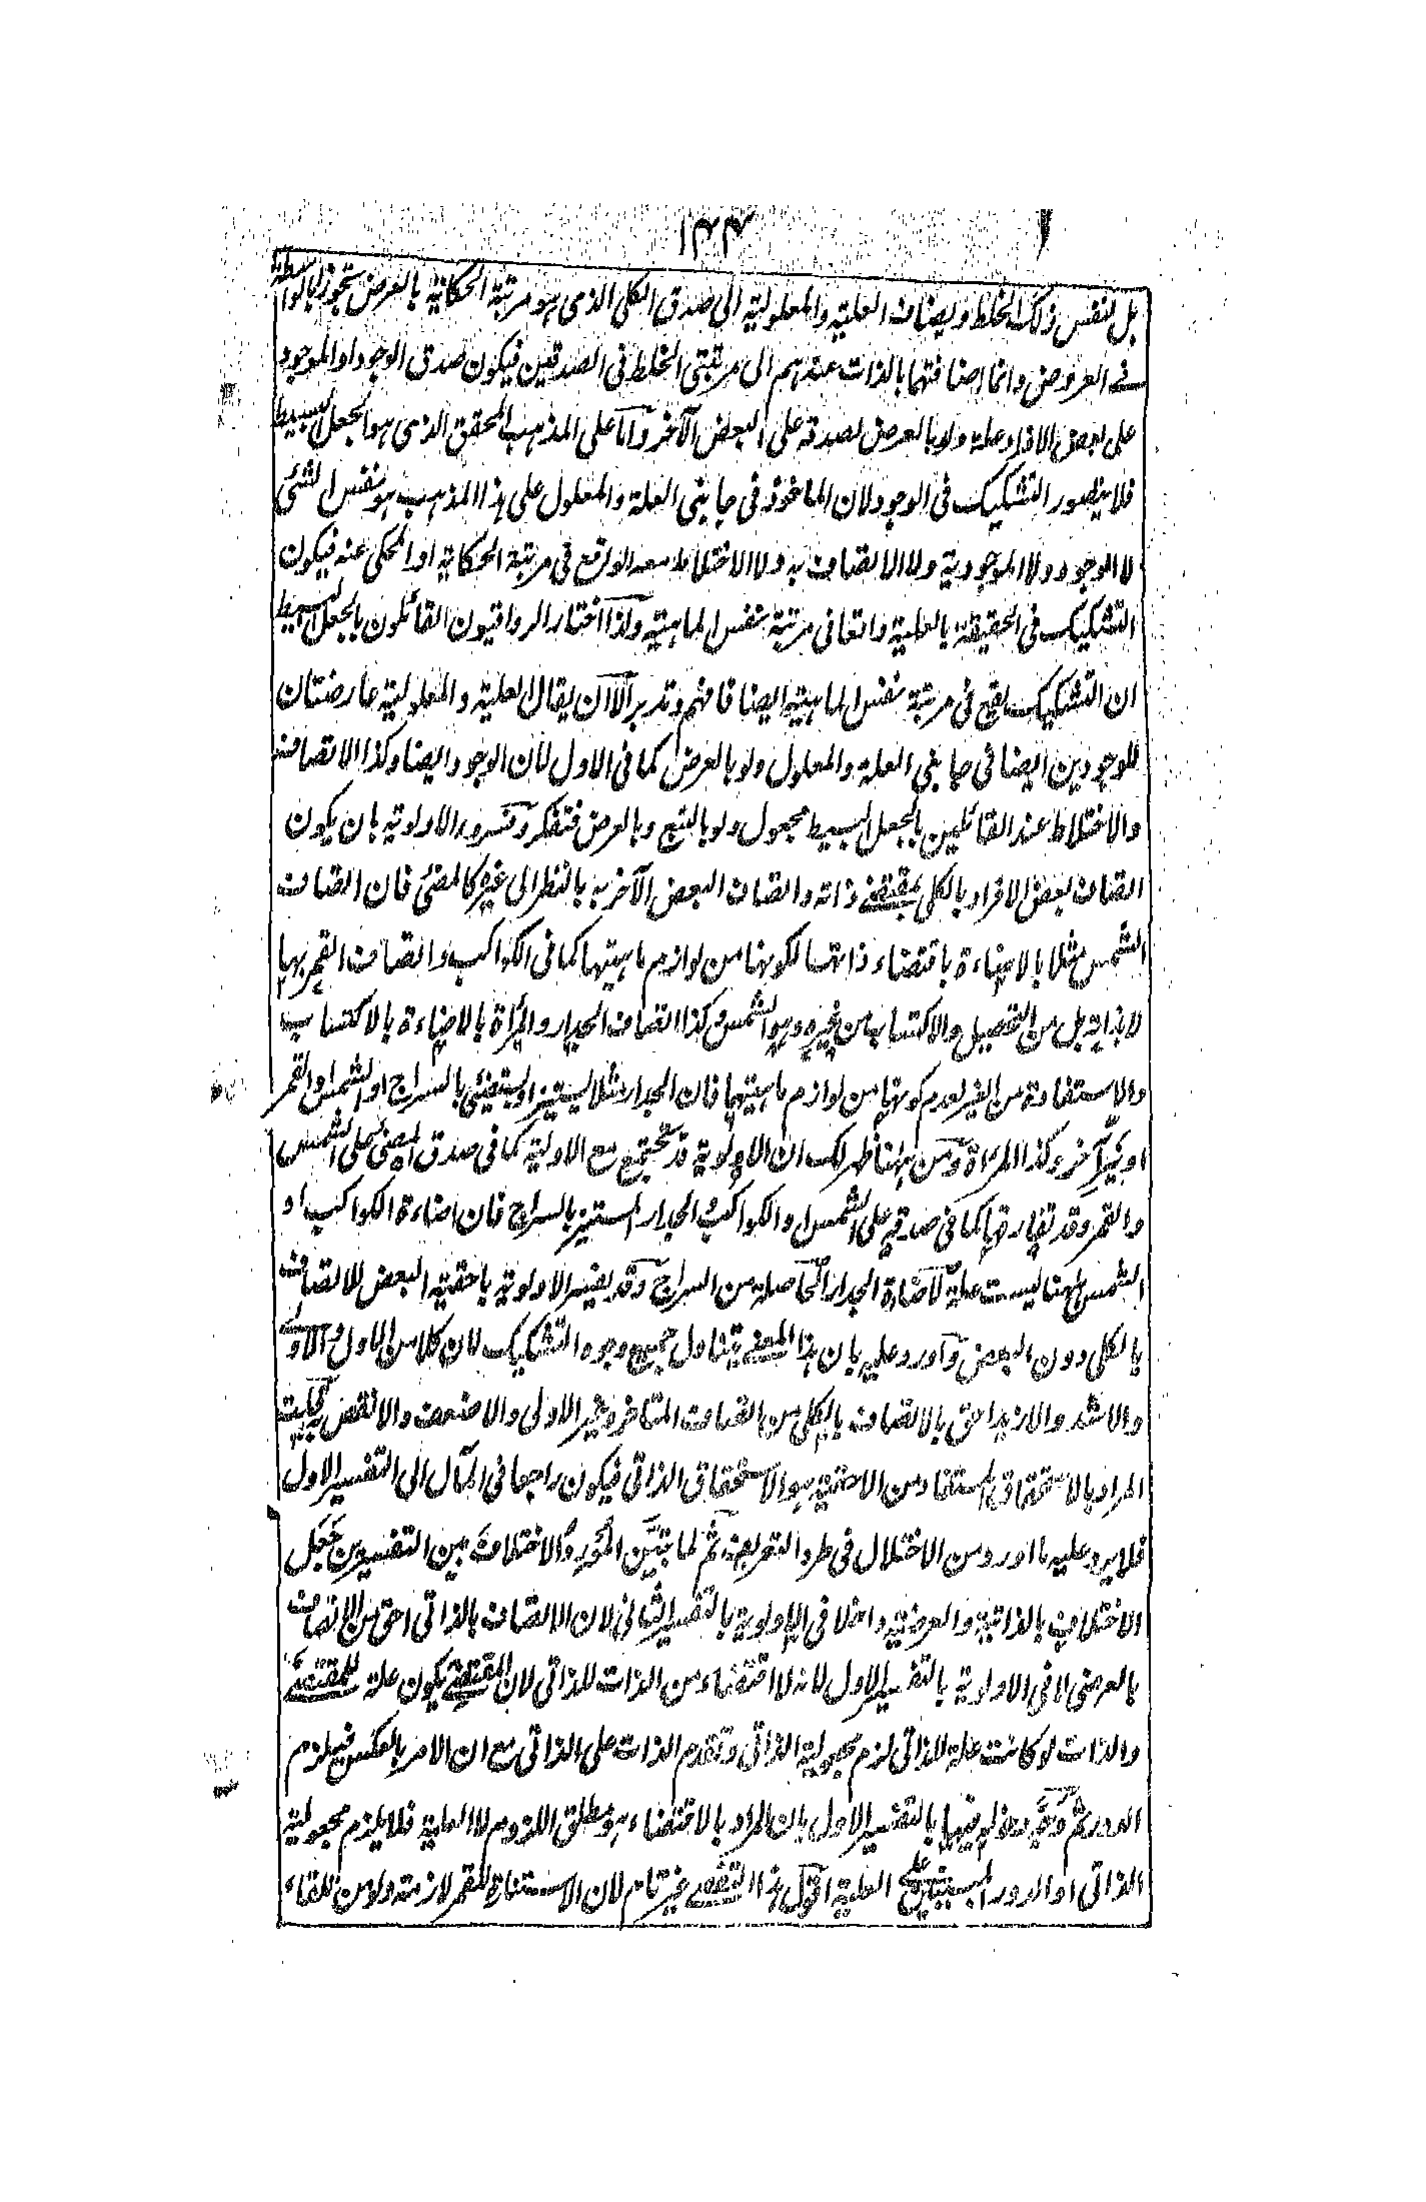 ۱۴۴
بل لنفس ذلك الخلط ويضاف العلية والمعلولية الى صدق الكلى الذى هو مرتبة الحكاية بالعرض تجوزا بالواسطة
فى العروض وانما اضافتهما بالذات عندهم الى مرتبتى الخلط فى الصدقين فيكون صدق الوجود او الموجود
على بعض الافراد علة ولو بالعرض لصدقه على البعض الآخر وآما على المذهب المحقق الذى هو الجعل البسيط
فلا يتصور التشكيك فى الوجود لان الماخوذ فى جانبى العلة والمعلول على هذا المذهب هو نفس الشئ
لا الوجود ولا الموجودية ولا الاتصاف به ولا الاختلاط معه الواقع فى مرتبة الحكاية او المحكى عنه فيكون
التشكيك فى الحقيقة بالعلية واقعا فى مرتبة نفس الماهية ولذا اختار الرواقيون القائلون بالجعل البسيط
ان التشكيك يقع فى مرتبة نفس الماهية ايضا فافهم وتدبر آلا ان يقال العلية والمعلولية عارضتان
للوجودين ايضا فى جانبى العلة والمعلول ولو بالعرض كما فى الاول لان الوجود ايضا وكذا الاتصاف
والاختلاط عند القائلين بالجعل البسيط مجعول ولو بالتبع وبالعرض فتفكر وتفسر الاولوية بان يكون
اتصاف بعض الافراد بالكلى بمقتضى ذاته واتصاف البعض الآخر به بالنظر الى غيره كالمضئ فان اتصاف
الشمس مثلا بالاضاءة باقتضاء ذاتها لكونها من لوازم ماهيتها كما فى الكواكب واتصاف القمر بها
لا بذاته بل من التحصيل والاكتساب من غيره وهو الشمس وكذا اتصاف الجدار والمرأة بالاضاءة بالاكتساب
والاستفادة من الغير لعدم كونها من لوازم ماهيتها فان الجدار مثلا يستنير او يستضئ بالسراج او الشمس او القمر
او نير آخر وكذا المرأة ومن ههنا ظهر لك ان الاولوية قد تجتمع مع الاولية كما فى صدق المضئ على الشمس
والقمر وقد تفارقها كما فى صدقه على الشمس او الكواكب والجدار المستنير بالسراج فان اضاءة الكواكب او
الشمس ههنا ليست علة لاضاءة الجدار الحاصلة من السراج وقد يفسر الاولوية باحقية البعض للاتصاف
بالكلى دون البعض وآورد عليه بان هذا المعنى يتناول جميع وجوه التشكيك لان كلا من الاول والاولى
والاشد والازيد احق بالاتصاف بالكلى من اتصاف المتاخر وغير الاولى والاضعف والانقص به
المراد بالاستحقاق المستفاد من الاحقية هو الاستحقاق الذاتى فيكون راجعا فى المآل الى التفسير الاول
فلا يرد عليه ما اورد من الاختلال فى طرد التعريف ثم لما تبين والاختلاف بين التفسيرين جعل
الاختلاف بالذاتية والعرضية داخلا فى الاولوية بالتفسير الثانى لان الاتصاف بالذاتى احق من الاتصاف
بالعرضى لا فى الاولوية بالتفسير الاول لانه لا اقتضاء من الذات للذاتى لان المقتضى يكون علة للمقتضى
والذات لو كانت علة للذاتى لزم مجعولية الذاتى وتقدم الذات على الذاتى مع ان الامر بالعكس فيلزم
الدور ثم دخوله فيها بالتفسير الاول بان المراد بالاقتضاء هو مطلق اللزوم لا العلية فلا يلزم مجعولية
الذاتى او الدور المبنيين على العلية اقول هذا غير تام لان الاستنارة للقمر لازمة ولو من تلقاء